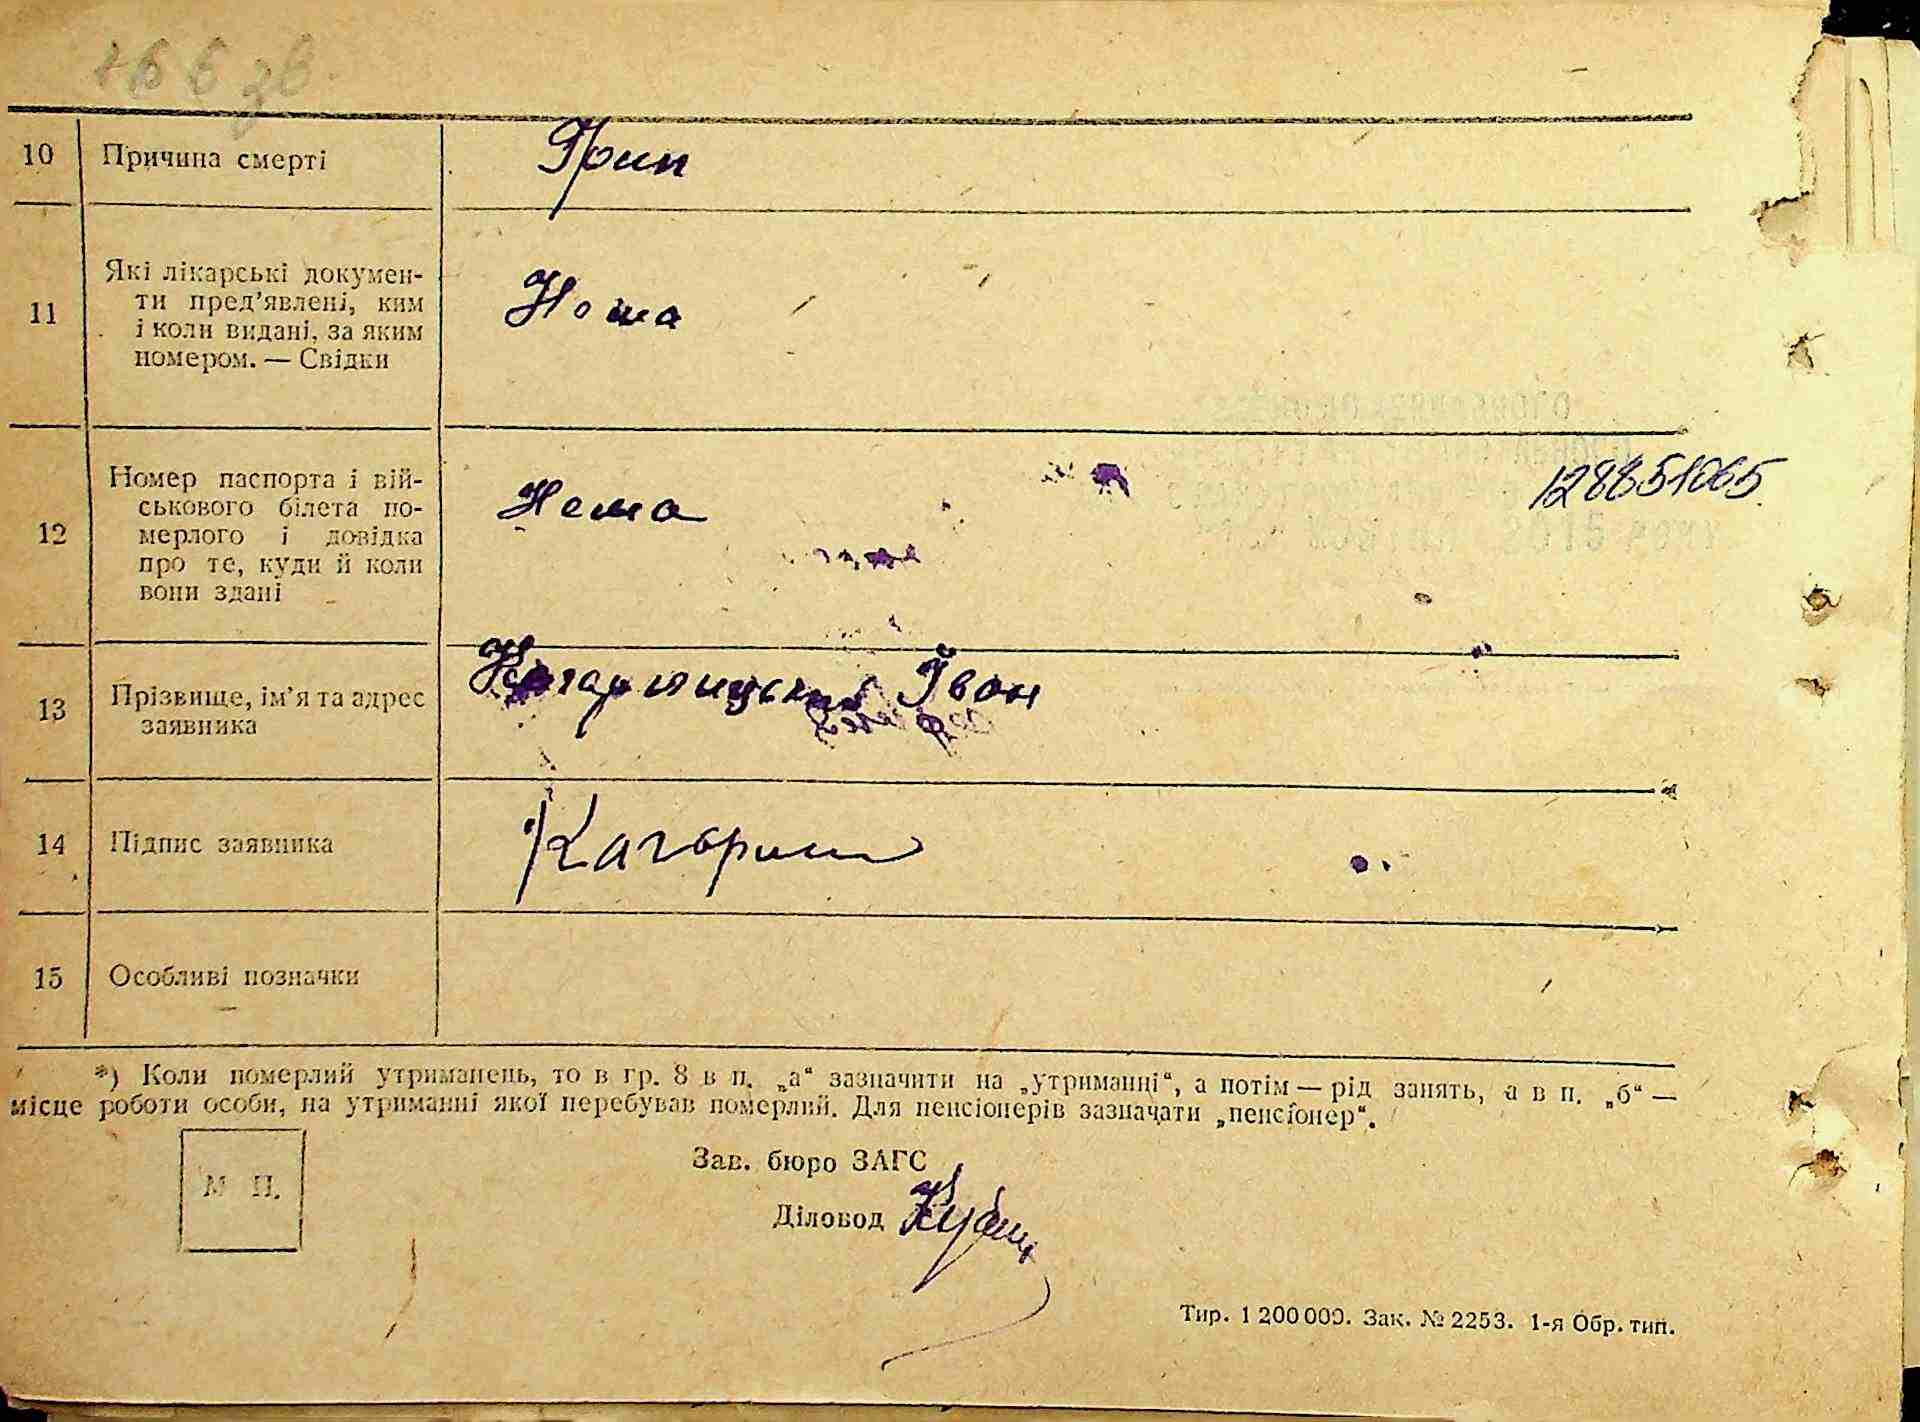 10 Причина смерті Грип
11 Які лікарські докумен-
ти пред’явлені, ким
і коли видані, за яким
номером. — Свідки
Нема
12 Номер паспорта і вій-
ськового білета по-
мерлого і довідка
про те, куди й коли
вони здані
Нема
128851065
13 Прізвище, ім’я та адрес
заявника
Іван
14 Підпис заявника
15 Особливі позначки
*) Коли померлий утриманець, то в гр. 8 в п. „а“ зазначити на „утриманні“, а потім — рід занять, а в п. „б“ —
місце роботи особи, на утриманні якої перебував померлий. Для пенсіонерів зазначати „пенсіонер“.
М П.
Зав. бюро ЗАГС
Діловод
Тир. 1 200 000. Зак. № 2253. 1-я Обр. тип.